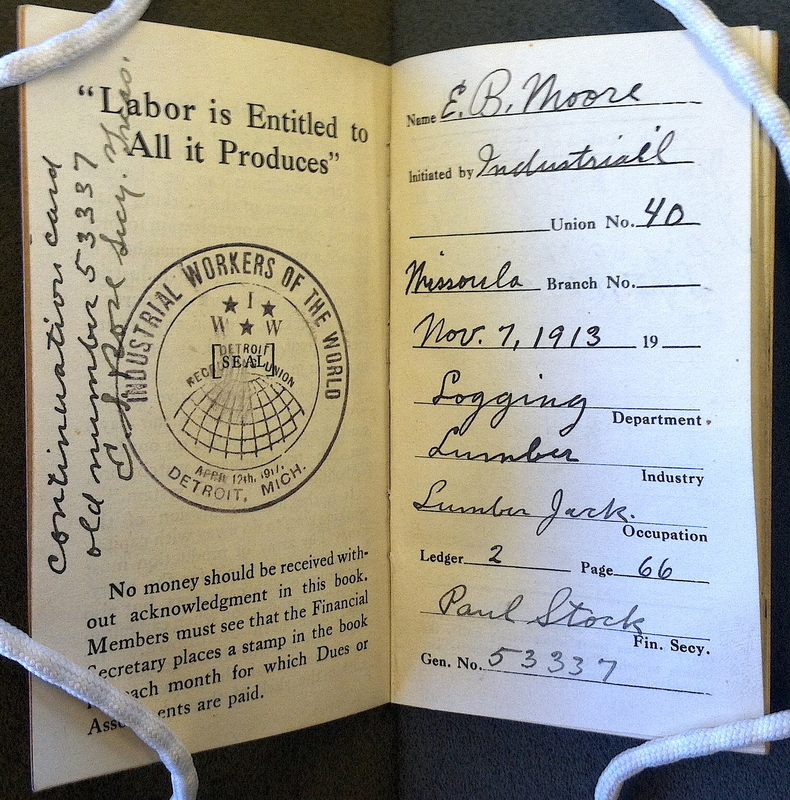 "Labor is Entitled to
All it Produces"
INDUSTRIAL WORKERS OF THE WORLD
I
W W
DETROIT
[SEAL]
UNION
APRIL 12th, 191
DETROIT, MICH.
No money should be received with-
out acknowledgment in this book.
Members must see that the Financial
Secretary places a stamp in the book
each month for which Dues or
are paid.
continuation card
old number 53337
Rose Secy. Treas.
Name E. B. Moore
Initiated by Industrial
Union No. 40
Missoula Branch No.
Nov. 7, 1913 19
Logging
Department.
Lumber
Industry
Lumber Jack.
Occupation
Ledger 2 Page 66
Paul Stock
Fin. Secy.
Gen. No. 53337